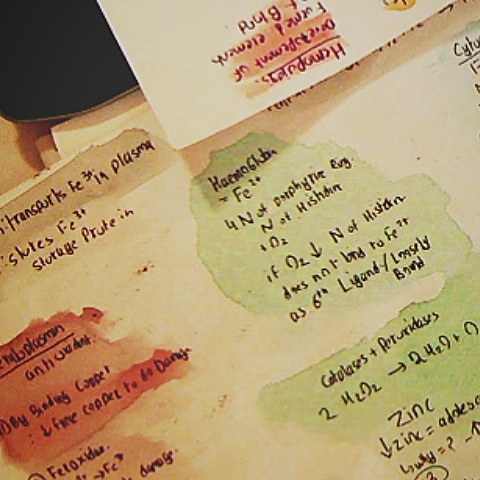 Hemopoiesis:
Development of
Formed elements
of Blood
: transports Fe³⁺ in plasma
: stores Fe³⁺
storage protein
Haemoglobin
= Fe²⁺
4 N of porphyrine ring
N of Histidin
1 O₂
if O₂ ↓ N of Histidin
does not bind to Fe²⁺
as 6th Ligand / Loosely
Bond
antioxidant
By Binding Copper
: ↓ free copper to do Damage
Feroxidase
→ Fe³⁺
damage.
Catalases + peroxidases
2 H₂O₂ → 2 H₂O +
Zinc
↓ zinc =